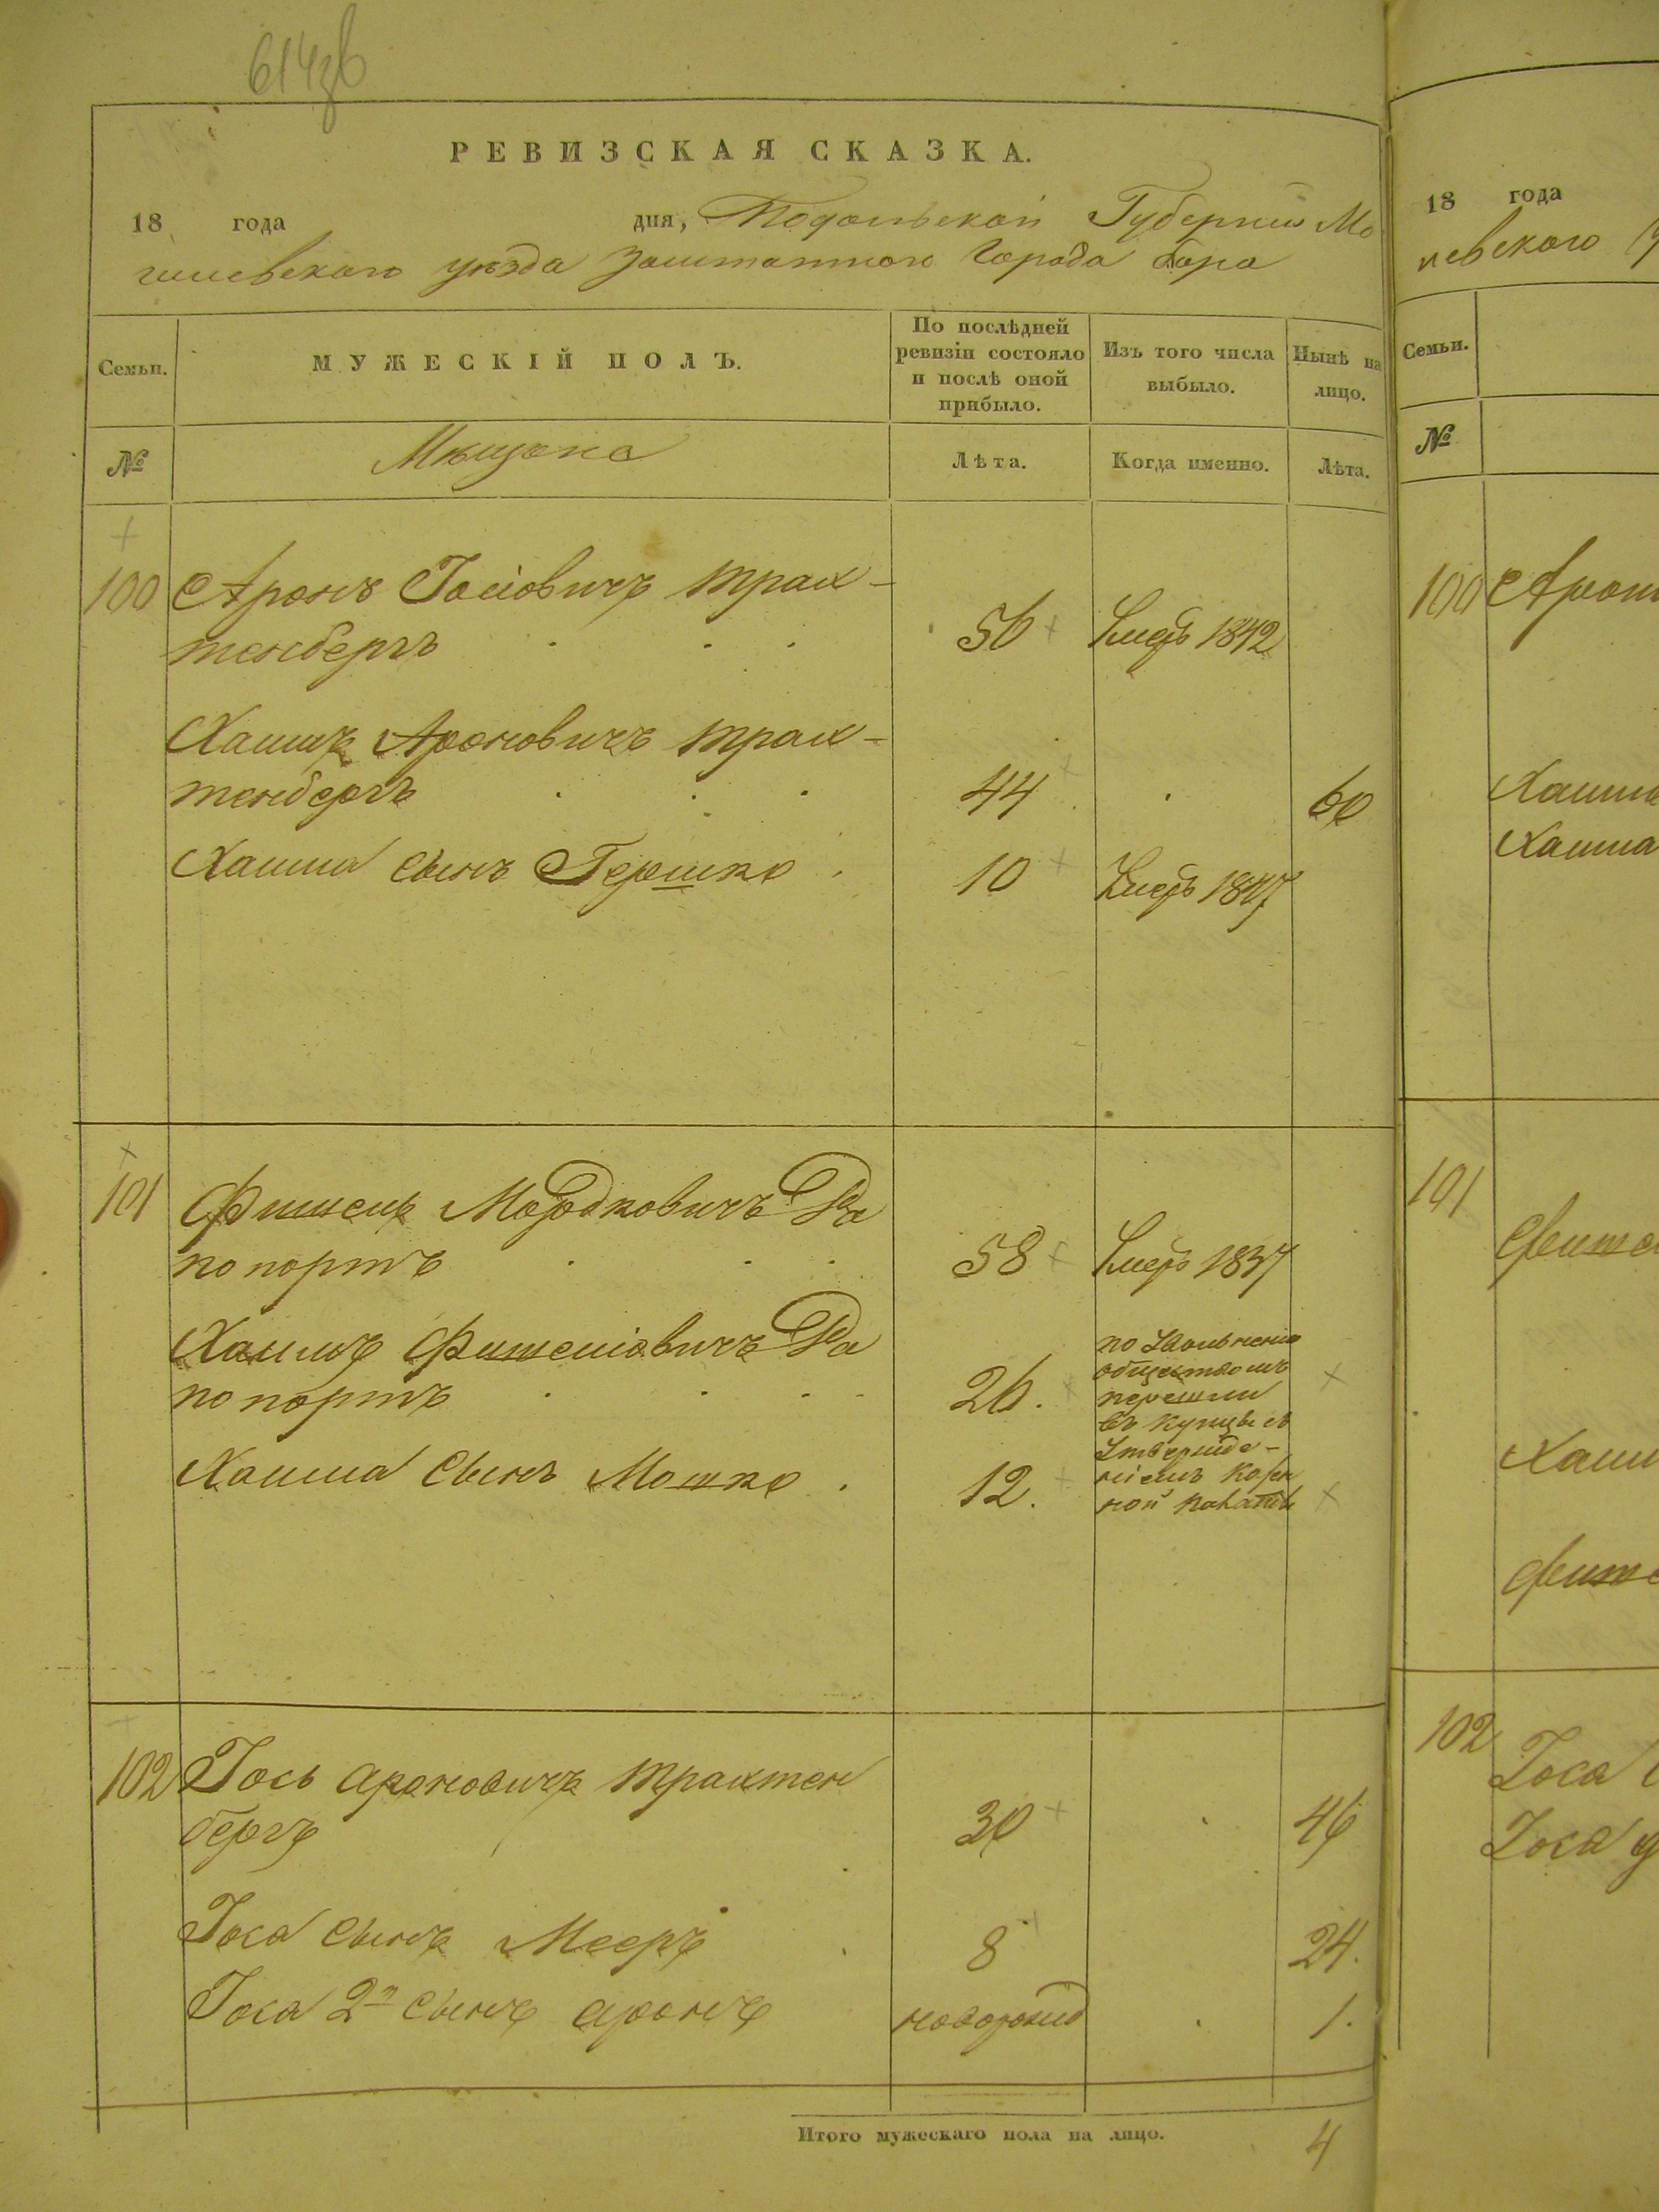 614
РЕВИЗСКАЯ СКАЗКА.
18 года дня, Подольской Губернии Мо
гилевского уезда заштатного Города бара
Семьи.
МУЖЕСКІЙ ПОЛЪ.
По послѣдней
ревизіи состояло
и послѣ оной
прибыло.
Изъ того числа
выбыло.
Нынѣ на
лицо.
№
Мещане
Лѣта.
Когда именно.
Лѣта.
100 Аронъ Іосіовичъ трах-
тенбергъ 56 Умеръ 1842
Хаимъ Ароновичъ трах-
тенбергъ 44 60
Хаима сынъ Гершко 10 Умеръ 1847
101 Фишель Мордковичъ Ра
попортъ 58 Умеръ 1837
Хаимъ Фишеліовичъ Ра
попортъ 26.
Хаима Сынъ Мошко 12.
по Увольненію
обществомъ
перешли
въ купцы съ
Утвержде-
ніемъ Казен
ной палаты
102 Іось Ароновичъ трахтен
бергъ 30 46
Іося сынъ Мееръ 8 24.
Іося 2й сынъ аронъ новорожд 1.
Итого мужескаго пола на лицо. 4
18 года
левского
Семьи.
№
100 Арон
Хаима
Хаима
101
Фише
Хаим
Фише
102 Іося
Іося